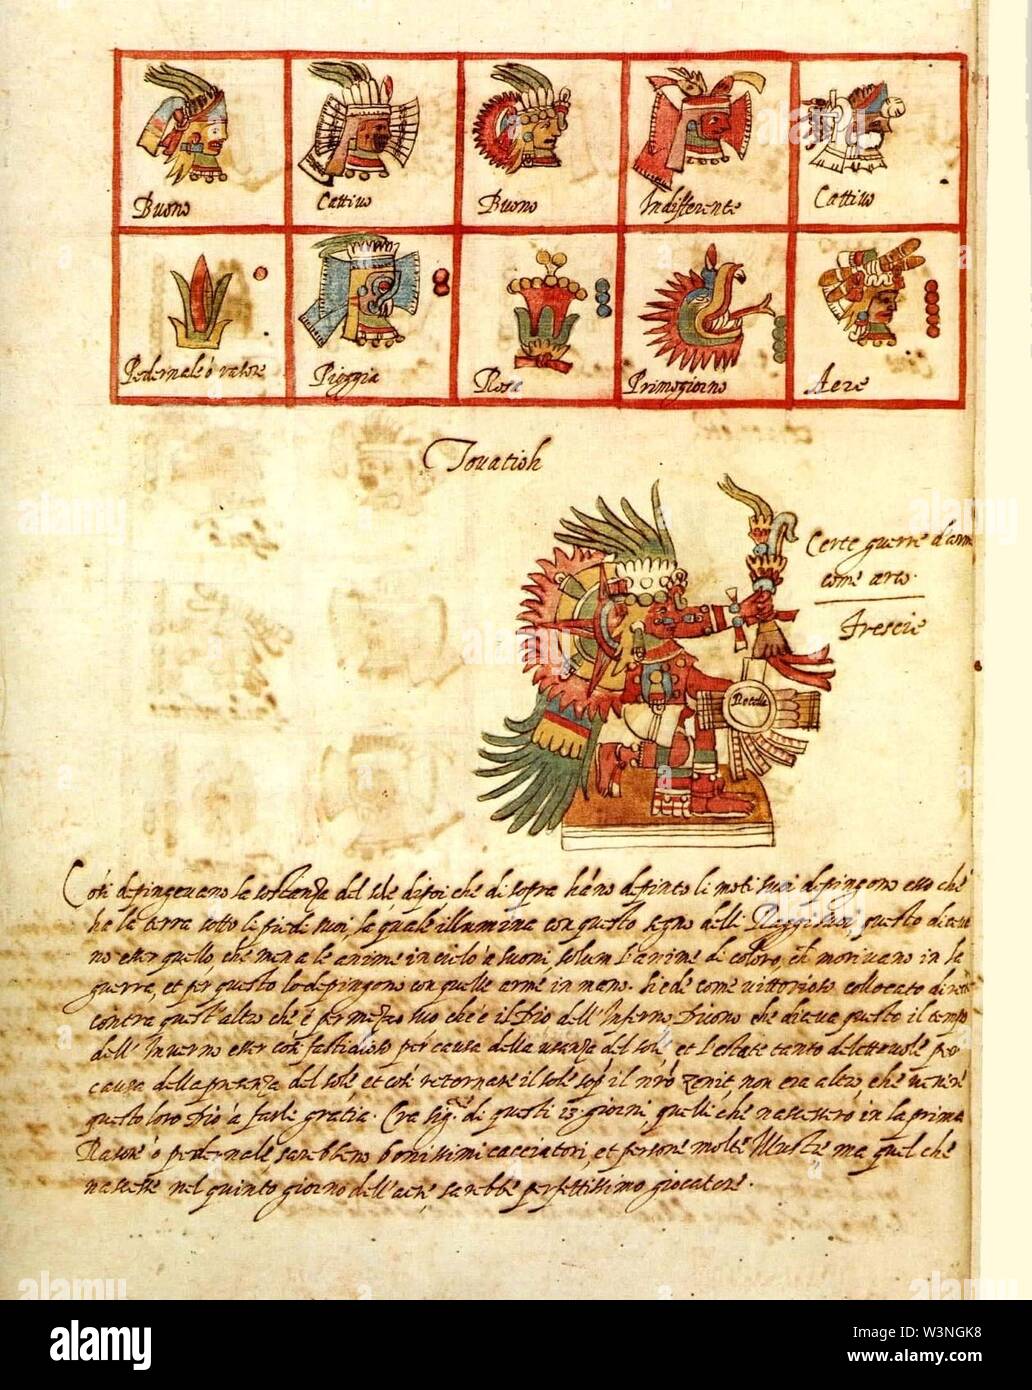 Buono Cattivo Buono Indifferente Cattivo
Pedernale ó rasore Pioggia Rosa Primogiorno Aere
Tonatioh
Certe guerre d'arm
come arco
Frescie
Rotella
Così depingevano la sostanza del sole dipoi che di sopra hàno depinto li moti suoi depingono esso chè
ha la terra sotto li piedi suoi, la quale illumina con questo segno delli Raggi suoi, questo dicevà
no esser quello, che mena le anime in cielo à suoni, solum l'anime di coloro, ch morivano in la
guerra, et per questo lo depingono con quelle arme in mano. Siede come vittorioso collocato
contra quest'altro chè è per mezzo suo ch'è il Dio dell'Inferno Dicono che diceva questo il tempo
dell'Inverno esser così fastidioso per causa della del sole, et l'estate tanto delettevole per
causa della presenza del sole, et così retornare il sole sop il nrò zenit, non era altro, che venire
questo loro Dio à farle gratia. Era sig.re di questi 13. giorni, quelli che nascessero in la prima
Rasore ó pedernale, sarebbero bonissimi cacciatori, et persone molte Illustre ma quel chè
nascesse nel quinto giorno dell'aere, sarebbe perfettissimo giocatore.
alamy
Image ID: W3NGK8
www.alamy.com